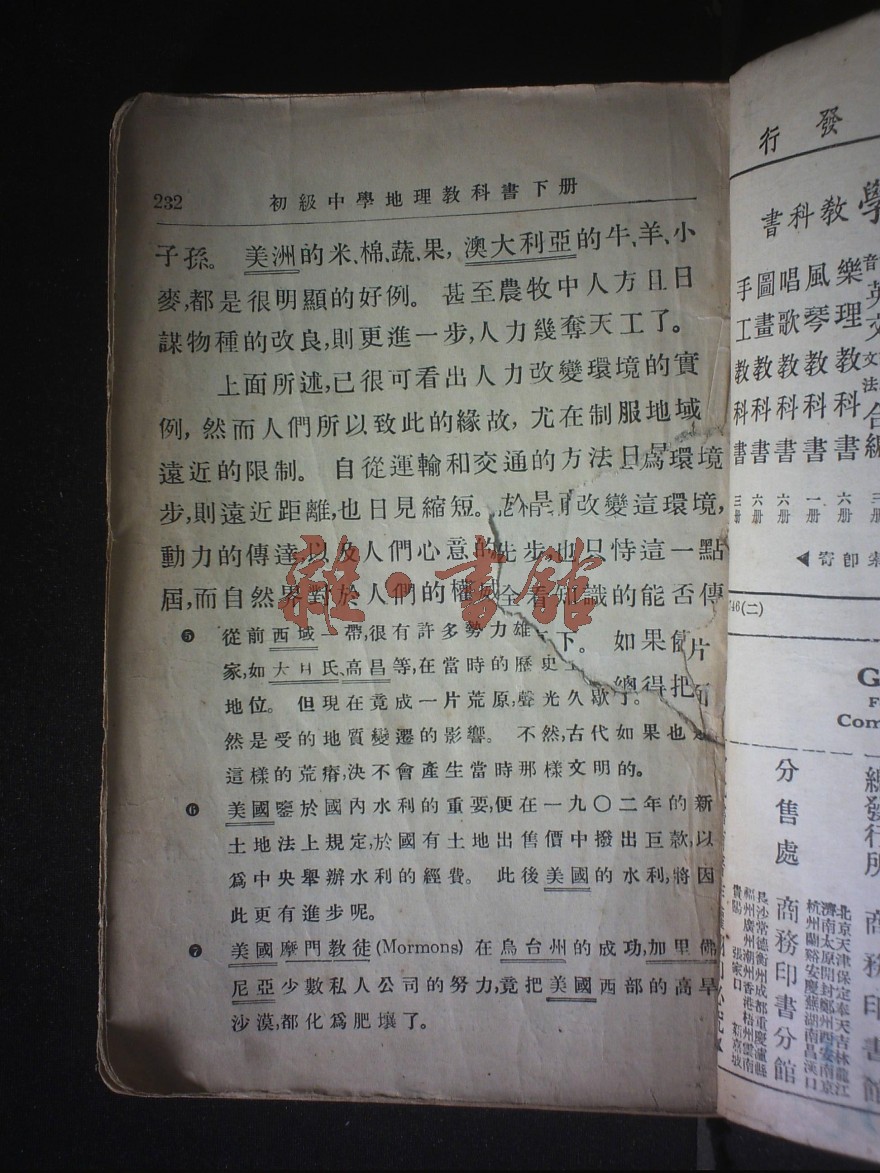 232 初級中學地理教科書下册
子孫。 美洲的米、棉、蔬、果, 澳大利亞的牛、羊、小
麥,都是很明顯的好例。 甚至農牧中人方且日日
謀物種的改良,則更進一步,人力幾奪天工了。
上面所述,已很可看出人力改變環境的實
例, 然而人們所以致此的緣故, 尤在制服地域
遠近的限制。 自從運輸和交通的方法日
步,則遠近距離,也日見縮短。 於是
動力的傳達,以及人們心意的
屆,而自然界對於人們的權威
爲環境
改變這環境,
先步,也只恃這一點
全看知識的能否傳
下。 如果
片
總得把
❺ 從前西域一帶,很有許多勢力雄
家,如大月氏、高昌等,在當時的歷史
地位。 但現在竟成一片荒原,聲光久歇了。
然是受的地質變遷的影響。 不然,古代如果也
這樣的荒瘠,決不會產生當時那樣文明的。
❻ 美國鑒於國內水利的重要,便在一九〇二年的新
土地法上規定,於國有土地出售價中撥出巨款,以
爲中央舉辦水利的經費。 此後美國的水利,將因
此更有進步呢。
❼ 美國摩門教徒(Mormons)在烏台州的成功,加里佛
尼亞少數私人公司的努力,竟把美國西部的高旱
沙漠,都化爲肥壤了。
雜·書館
行 發
書科教學
樂理教科書 六册
風琴教科書 一册
唱歌教科書 六册
圖畫教科書 六册
手工教科書 三册
寄即索
746(二)
G
F
Com
分售處
商務印書分館
總發行所
商務印書館
北京天津保定奉天吉林龍江
濟南太原開封鄭州西安南京
杭州蘭谿安慶蕪湖南昌漢口
長沙常德衡州成都重慶瀘縣
福州廣州潮州香港梧州雲南
貴陽 張家口 新嘉坡